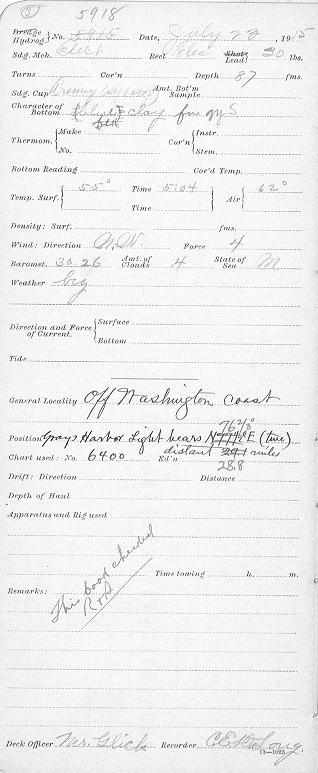 3 5918
Dredge Hydrog. } No. 5915 Date, July 22, 1915
Sdg. Mch. Elect Reel Shot Lead } 30 lbs.
Turns Cor'n Depth 87 fms.
Sdg. Cup Amt. Bot'm Sample
Character of Bottom clay fne gy S
Thermom. { Make No. Cor'n { Instr. Stem.
Bottom Reading Cor'd Temp.
Temp. Surf. { 55° Time 5:04 Time } Air { 62°
Density: Surf. fms.
Wind: Direction N.W. Force 4
Baromet. 30.26 Amt. of Clouds 4 State of Sea M
Weather bcg
Direction and Force of Current. { Surface Bottom
Tide
General Locality Off Washington coast
76 2/3°
Position Grays Harbor Light bears N 77 1/2° E (true)
Chart used: No. 6400 Ed'n distant 29.1 miles
28.8
Drift: Direction Distance
Depth of Haul
Apparatus and Rig used
Time towing h. m.
Remarks: This book checked
R+A
Deck Officer Mr. Glick Recorder C.E. DeLong.
11—1023